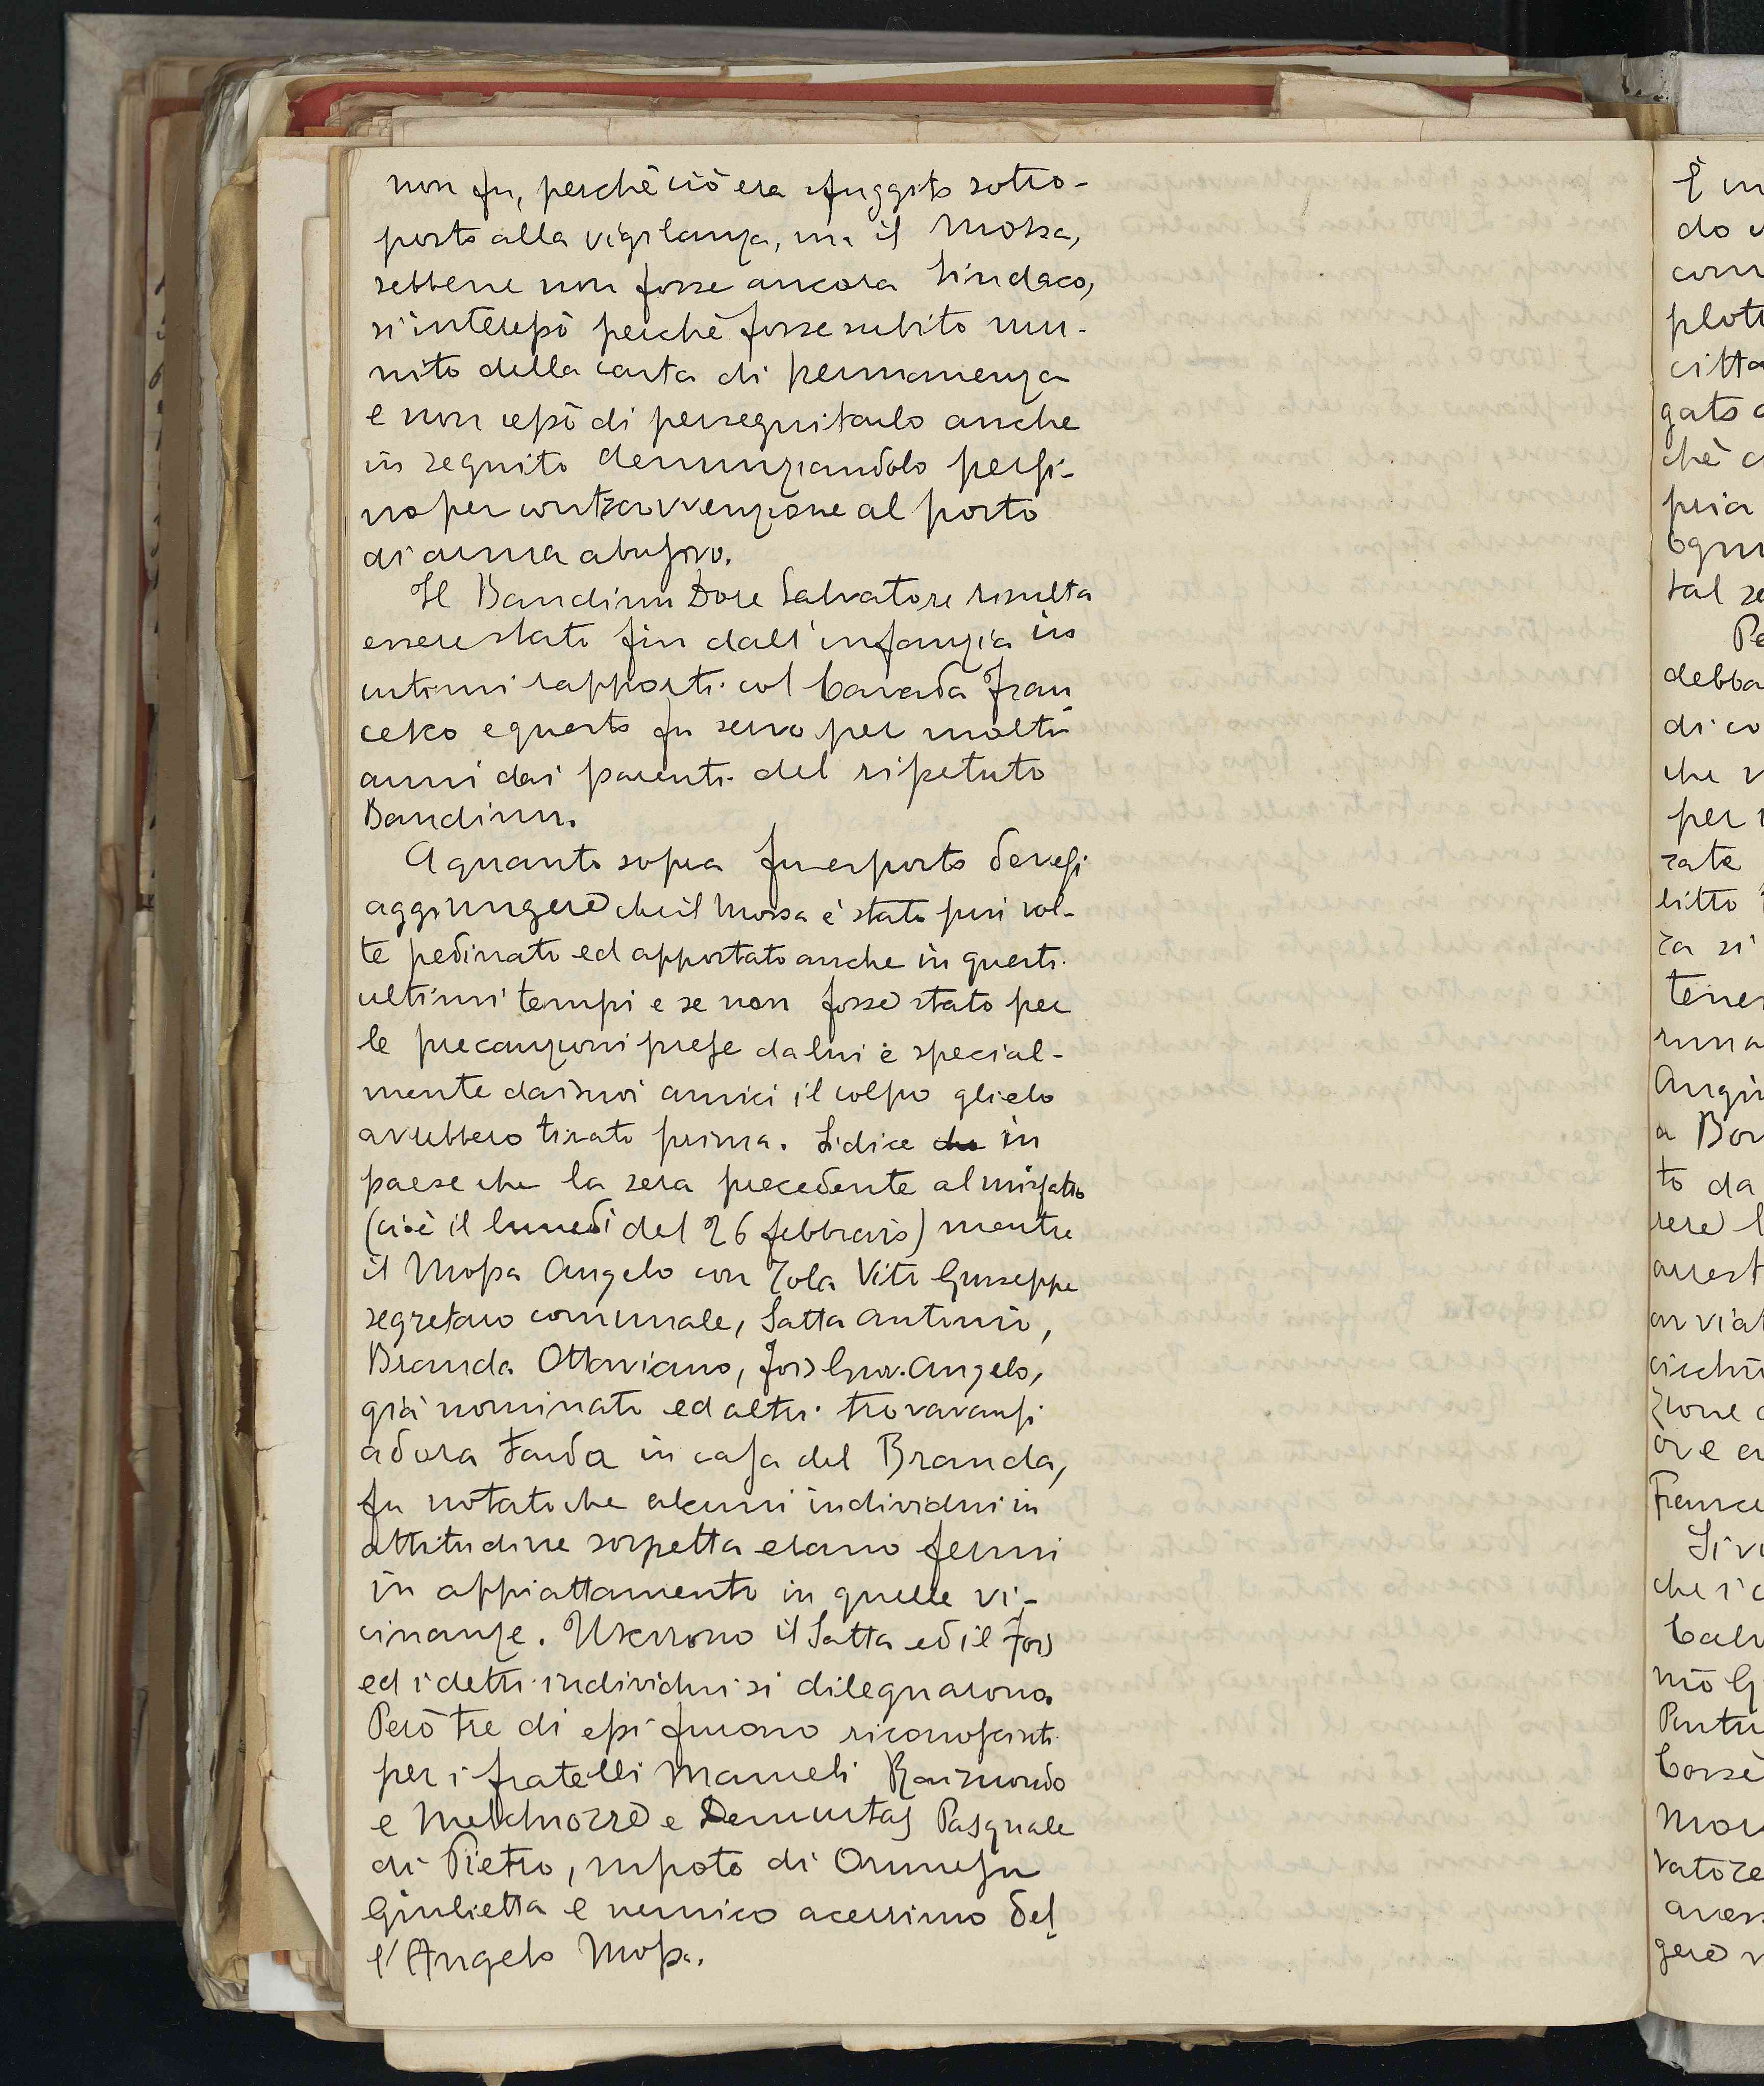 non fu, perchè ciò era sfuggito sotto-
posto alla vigilanza, ma il Mossa,
sebbene non fosse ancora Sindaco,
si interessò perchè fosse subito mu-
nito della carta di permanenza
e non cessò di perseguitarlo anche
in seguito denunziandolo persi-
no per contravvenzione al porto
di arma abusivo.
Il Bandinu Dore Salvatore risulta
essere stato fin dall'infanzia in
intimi rapporti col Carada Fran
cesco e questo fu servo per molti
anni dai parenti del ripetuto
Bandinu.
A quanto sopra fu esposto devesi
aggiungere che il Mossa è stato più vol-
te pedinato ed appostato anche in questi
ultimi tempi e se non fosse stato per
le precauzioni prese da lui e special-
mente dai suoi amici il colpo glielo
avrebbero tirato prima. Si dice che in
paese che la sera precedente al misfatto
(cioè il lunedì del 26 febbraio) mentre
il Mossa Angelo con Zola Viti Giuseppe
segretario comunale, Satta Antonio,
Branda Ottaviano, Fois Giov. Angelo,
già nominato ed altri trovavansi
ad ora tarda in casa del Branda,
fu notato che alcuni individui in
attitudine sospetta erano fermi
in appiattamento in quelle vi-
cinanze. Uscirono il Satta ed il Fois
ed i detti individui si dileguarono.
Però tre di essi furono riconosciuti
per i fratelli Mameli Raimondo
e Melchiorre e Demurtas Pasquale
di Pietro, nipote di Orunesu
Giulietta e nemico acerrimo del
l'Angelo Mossa.
È
do
com
plott
citta
gato
chè
pria
Ogni
tal se
Pe
debba
di co
che
per
rate
litto
za si
tener
runa
Angi
a Bor
to da
rere
arrest
zione
Franc
Si v
che i
Calv
Pintu
vatore
gere